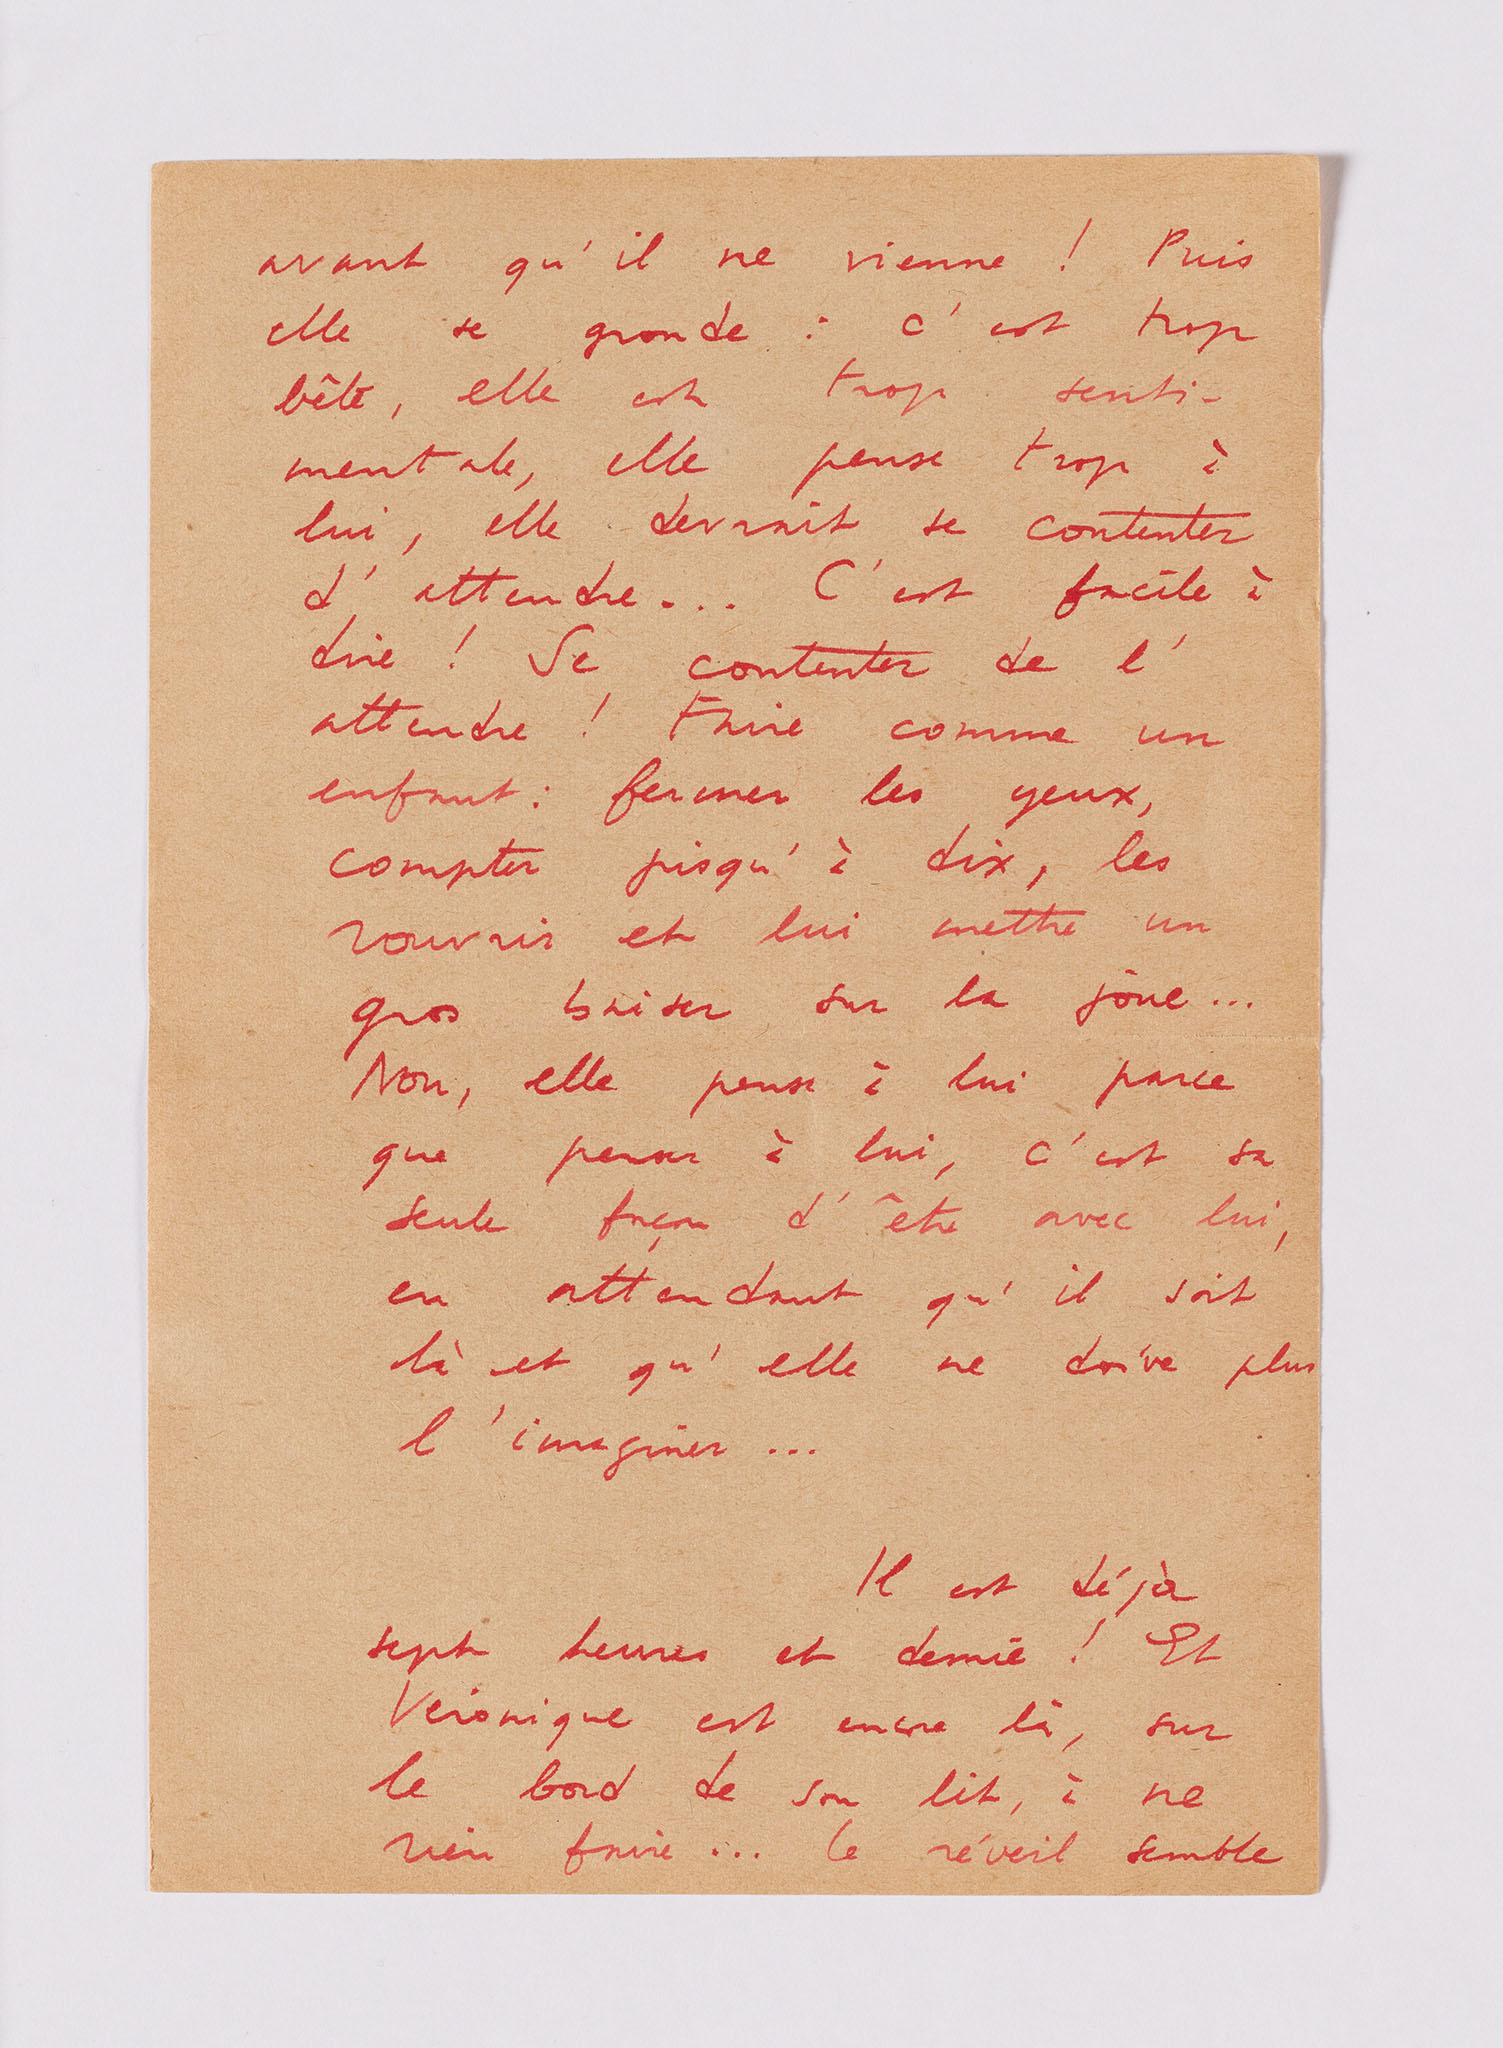 avant qu'il ne vienne ! Puis
elle se gronde : c'est trop
bête, elle est trop senti-
mentale, elle pense trop à
lui, elle devrait se contenter
d'attendre... C'est facile à
dire ! Se contenter de l'
attendre ! Faire comme un
enfant : fermer les yeux,
compter jusqu'à dix, les
rouvrir et lui mettre un
gros baiser sur la joue...
Non, elle pense à lui parce
que penser à lui, c'est sa
seule façon d'être avec lui,
en attendant qu'il soit
là et qu'elle ne doive plus
l'imaginer...
Il est déjà
sept heures et demie ! Et
Véronique est encore là, sur
le bord de son lit, à ne
rien faire... Le réveil semble